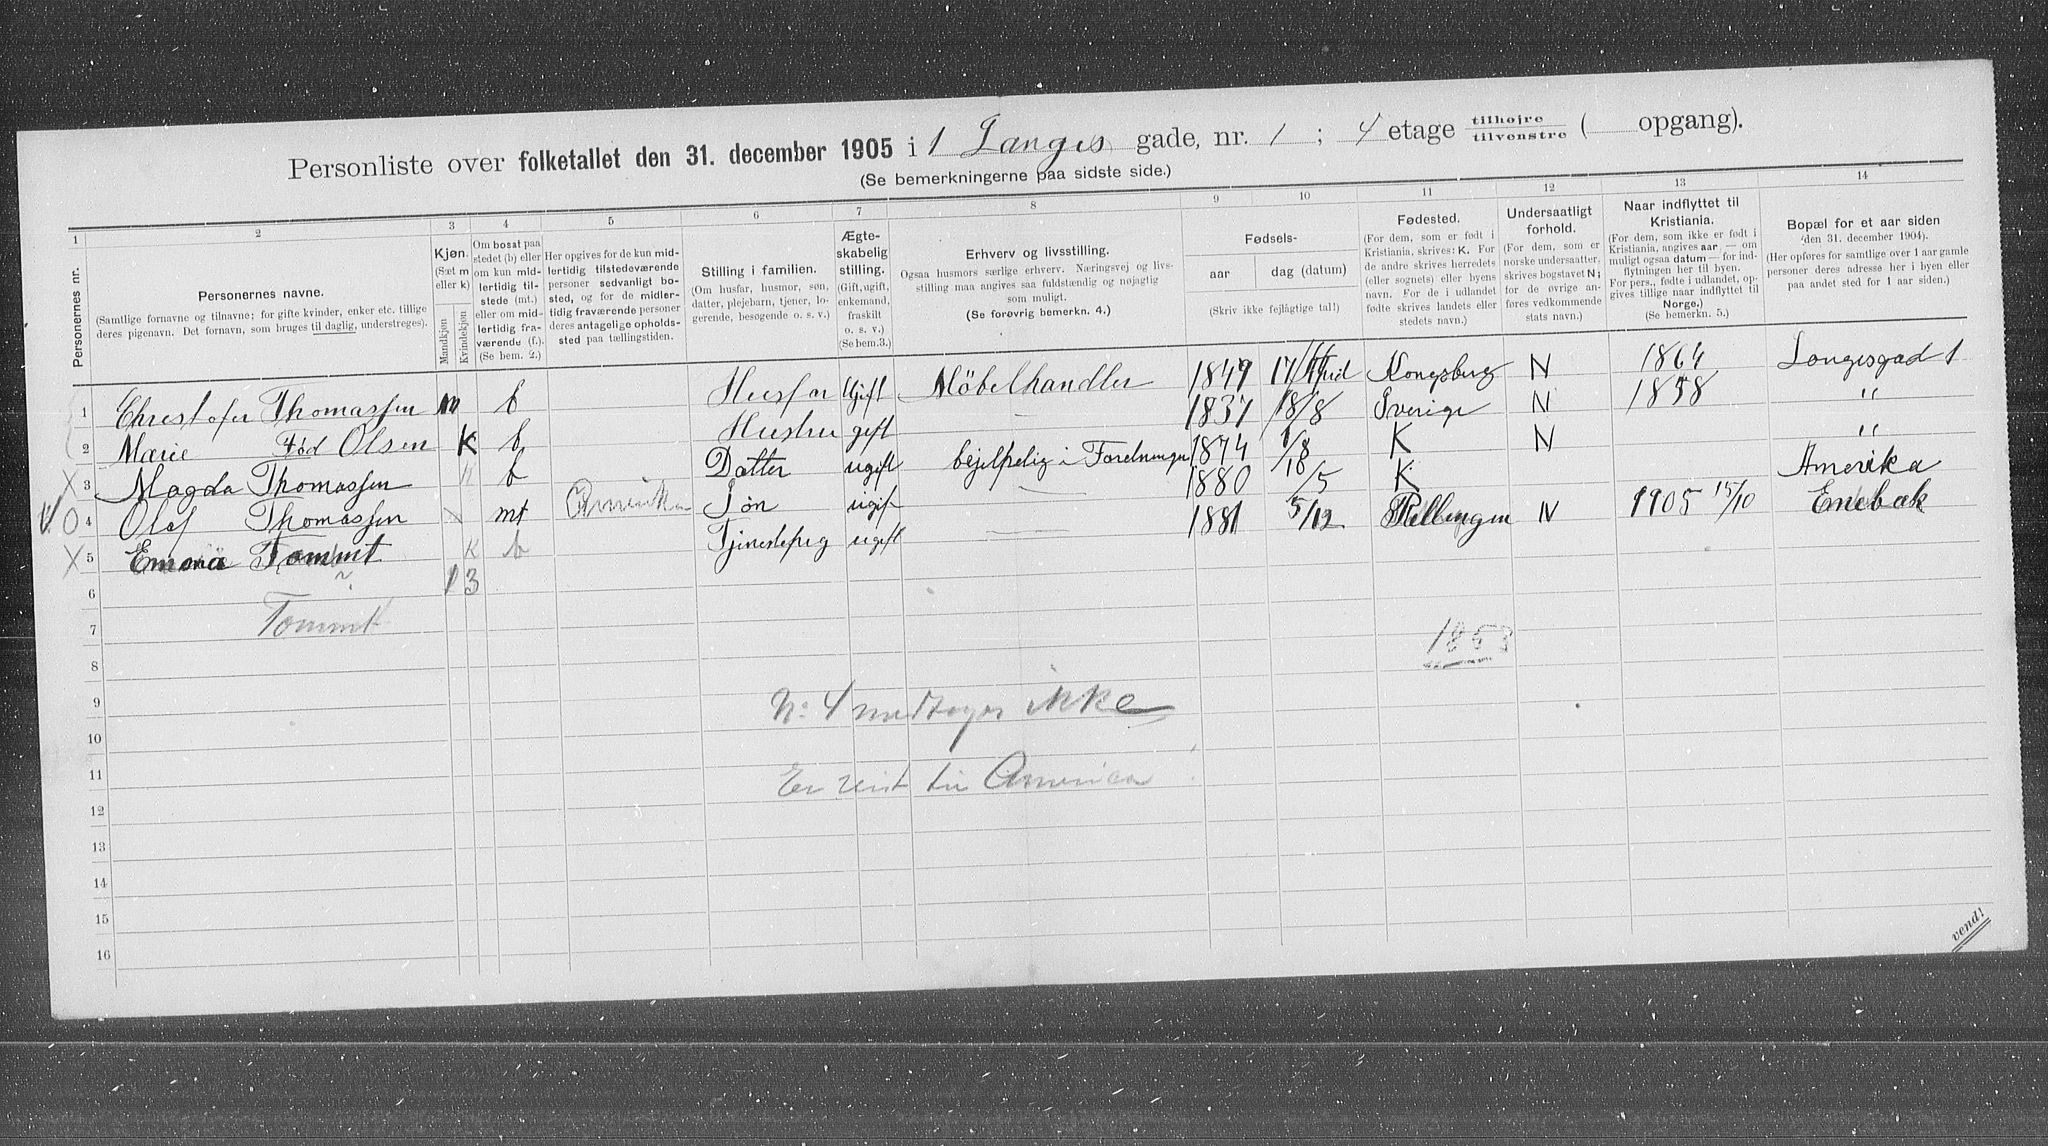 Personliste over folketallet den 31. december 1905 i 1 Langes gade, nr. 1 ; 4 etage tilhøjre tilvenstre ( opgang).
(Se bemerkningerne paa sidste side.)
1 2 3 4 5 6 7 8 9 10 11 12 13 14
Personernes nr.
Personernes navne.
(Samtlige fornavne og tilnavne; for gifte kvinder, enker etc. tillige
deres pigenavn. Det fornavn, som bruges til daglig, understreges).
Kjøn.
(Sæt m
eller k)
Mandkjøn
Kvindekjøn
Om bosat paa
stedet (b) eller
om kun mid-
lertidig til-
stede (mt.)
eller om mid-
lertidig fra-
værende (f.).
(Se bem. 2.)
Her opgives for de kun mid-
lertidig tilstedeværende
personer sedvanligt bo-
sted, og for de midler-
tidig fraværende personer
deres antagelige opholds-
sted paa tællingstiden.
Stilling i familien.
(Om husfar, husmor, søn,
datter, plejebarn, tjener, lo-
gerende, besøgende o. s. v.)
Ægte-
skabelig
stilling.
(Gift, ugift,
enkemand,
fraskilt
o. s. v.)
(Se bem.3.)
Erhverv og livsstilling.
Ogsaa husmors særlige erhverv. Næringsvej og livs-
stilling maa angives saa fuldstændig og nøjagtig
som muligt.
(Se forøvrig bemerkn. 4.)
Fødsels-
aar dag (datum)
(Skriv ikke fejlagtige tal!)
Fødested.
(For dem, som er født i
Kristiania, skrives: K. For
de andre skrives herredets
(eller sognets) eller byens
navn. For de i udlandet
fødte skrives landets eller
stedets navn.)
Undersaatligt
forhold.
(For dem, som er
norske undersaatter,
skrives bogstavet N;
for de øvrige an-
føres vedkommende
stats navn.)
Naar indflyttet til
Kristiania.
(For dem, som ikke er født i
Kristiania, angives aar, — om
muligt ogsaa datum — for ind-
flytningen her til byen.
For pers., fødte i udlandet, op-
gives tillige naar indflyttet til
Norge.)
(Se bemerkn. 5.)
Bopæl for et aar siden
(den 31. december 1904).
(Her opføres for samtlige over 1 aar gamle
personer deres adresse her i byen eller
paa andet sted for 1 aar siden.)
1 Christofer Thomassen m b Husfar Gift Møbelhandler 1849 17/11 Kongsberg N 1864 Langesgad 1
2 Marie Fød Olsen K b Hustru gift — 1837 18/8 Sverige N 1858 "
X 3 Magda Thomassen k b Datter ugift i Foretninger 1874 1/8 K N "
O 4 Olaf Thomassen mt Amerika Søn ugift — 1880 10/5 K Amerika
X 5 Emma Tommt k b Tjenestepig ugift — 1881 5/12 N 1905 15/10 Enebak
6 1 3
7 Tommt
1853
8
9 N: 4 medtages ikke
10
11 Er reist til America
12
13
14
15
16
vend!